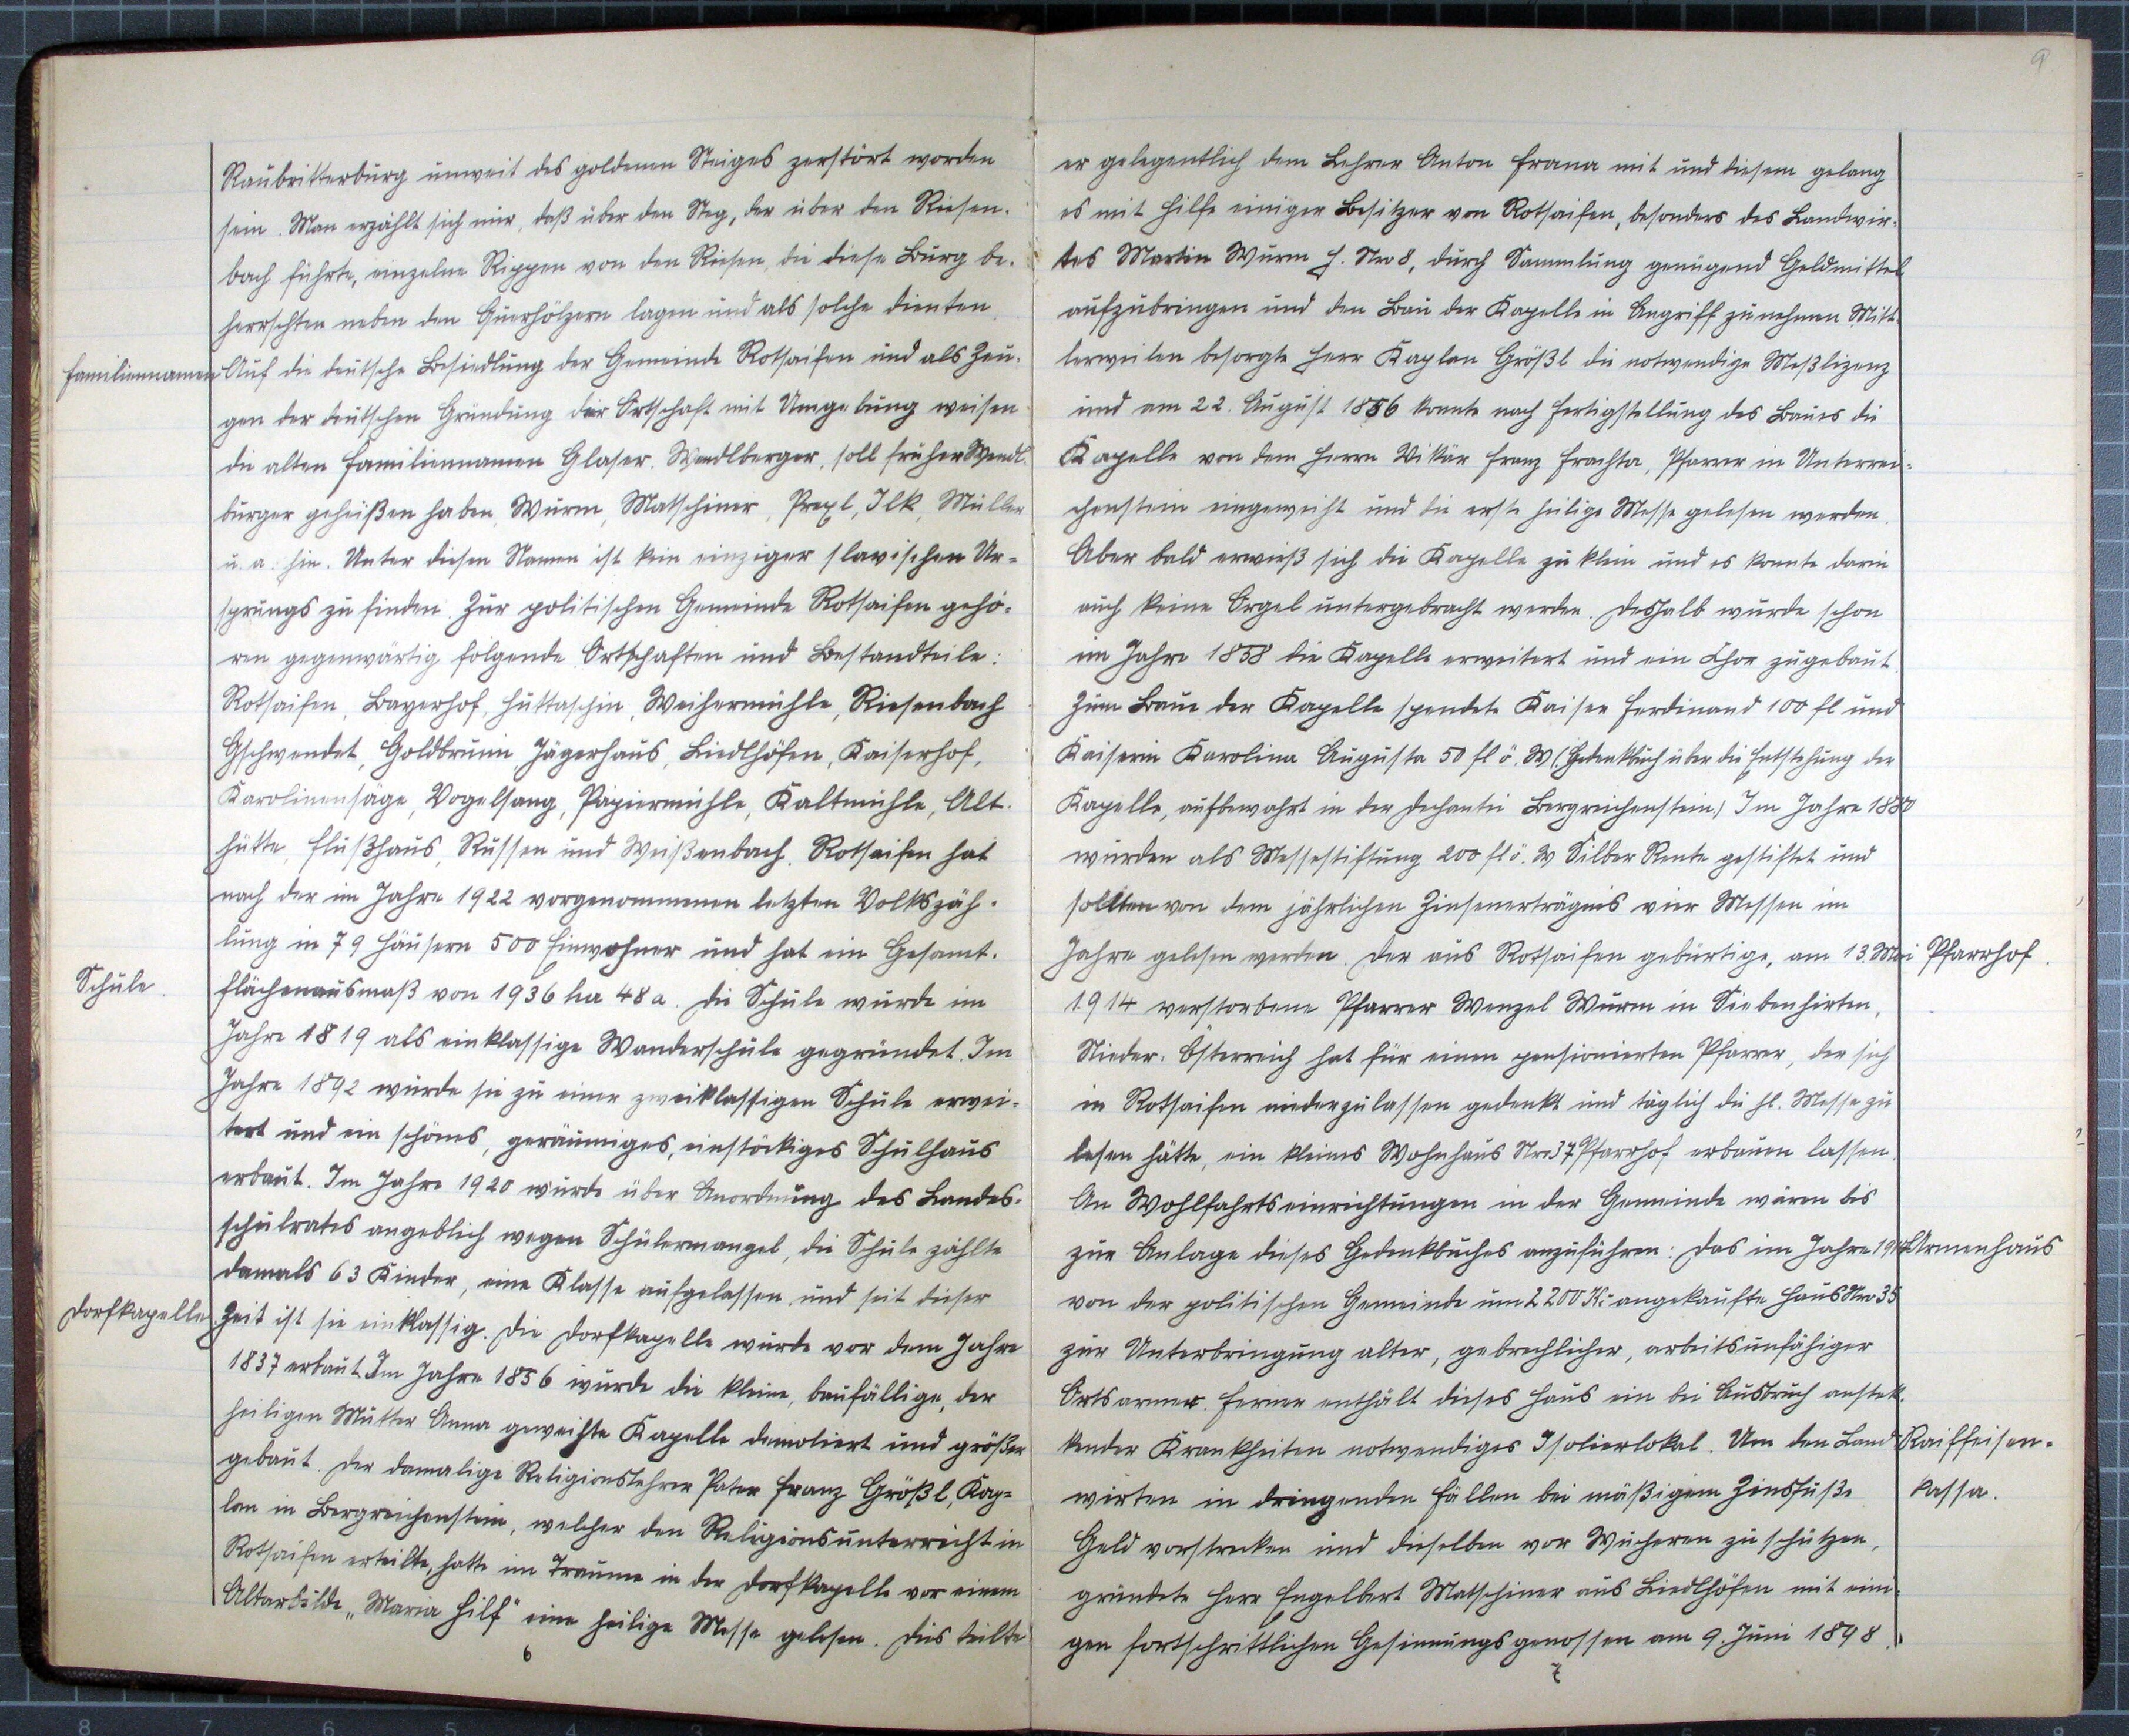 Raubritterburg unweit des goldenen Steiges zerstört worden
sein. Man erzählt sich nur, daß über den Steg, der über den Riesen-
bach führte, einzelne Rippen von den Riesen, die diese Burg be-
herrschten neben den Querhölzern lagen und als solche dienten.
Familiennamen Auf die deutsche Besiedlung der Gemeinde Rotsaifen und als Zeu-
gen der deutschen Gründung der Ortschaft mit Umgebung weisen
die alten Familiennamen Glaser, Wendlberger, soll früher Wendl-
burger geheißen haben, Wurm, Matschiner, Prexl, Ilk, Müller
u. a. hin. Unter diesen Namen ist kein einziger slavischen Ur-
sprungs zu finden. Zur politischen Gemeinde Rotsaifen gehö-
ren gegenwärtig folgende Ortschaften und Bestandteile:
Rotsaifen, Bayerhof, Huttaschin, Weihermühle, Riesenbach
Gschwendet, Goldbrunn Jägerhaus, Liedlhöfen, Kaiserhof,
Karolinensäge, Vogelsang, Papiermühle, Kaltmühle, Alt-
hütte, Flußhaus, Russen und Weißenbach. Rotsaifen hat
nach der im Jahre 1922 vorgenommenen letzten Volkszäh-
lung in 79 Häusern 500 Einwohner und hat ein Gesamt-
Schule. flächenausmaß von 1936 ha 48 a. Die Schule wurde im
Jahre 1819 als einklassige Wanderschule gegründet. Im
Jahre 1892 wurde sie zu einer zweiklassigen Schule erwei-
tert und ein schönes, geräumiges, einstöckiges Schulhaus
erbaut. Im Jahre 1920 wurde über Anordnung des Landes-
schulrates angeblich wegen Schülermangel, die Schule zählte
damals 63 Kinder, eine Klasse aufgelassen und seit dieser
Dorfkapelle Zeit ist sie einklassig. Die Dorfkapelle wurde vor dem Jahre
1837 erbaut. Im Jahre 1856 wurde die kleine, baufällige, der
heiligen Mutter Anna geweihte Kapelle demoliert und größer
gebaut. Der damalige Religionslehrer Pater Franz Größl, Kap-
lan in Bergreichenstein, welcher den Religionsunterricht in
Rotsaifen erteilte, hatte im Traume in der Dorfkapelle vor einem
Altarbilde „Maria Hilf" eine heilige Messe gelesen. Dies teilte
6
9
er gelegentlich dem Lehrer Anton Frana mit und diesem gelang
es mit Hilfe einiger Besitzer von Rotsaifen, besonders des Landwir-
tes Martin Wurm H. Nro 8, durch Sammlung genügend Geldmittel
aufzubringen und den Bau der Kapelle in Angriff zu nehmen Mitt-
lerweilen besorgte Herr Kaplan Größl die notwendige Meßlizenz
und am 22. August 1856 konnte nach Fertigstellung des Baues die
Kapelle von dem Herrn Vikär Franz Frachta, Pfarrer in Unterrei-
chenstein eingeweiht und die erste heilige Messe gelesen werden.
Aber bald erwieß sich die Kapelle zu klein und es konnte darin
auch keine Orgel untergebracht werden. Deshalb wurde schon
im Jahre 1858 die Kapelle erweitert und ein Chor zugebaut.
Zum Baue der Kapelle spendete Kaiser Ferdinand 100 fl und
Kaiserin Karolina Augusta 50 fl ö. W (Gedenkbuch über die Entstehung der
Kapelle, aufbewahrt in der Dechantei Bergreichenstein) Im Jahre 1880
wurden als Messestiftung 200 fl ö. W Silber Rente gestiftet und
sollten von dem jährlichen Zinsenerträgnis vier Messen im
Jahre gelesen werden. Der aus Rotsaifen gebürtige, am 13. Mai Pfarrhof.
1914 verstorbene Pfarrer Wenzel Wurm in Siebenhirten,
Nieder-Österreich hat für einen pensionierten Pfarrer, der sich
in Rotsaifen niederzulassen gedenkt und täglich die hl. Messe zu
lesen hätte, ein kleines Wohnhaus Nro 37 Pfarrhof erbauen lassen.
An Wohlfahrtseinrichtungen in der Gemeinde wären bis
zur Anlage dieses Gedenkbuches anzuführen: Das im Jahre 1914 Armenhaus
von der politischen Gemeinde um 2200 K- angekaufte Haus Nro 35
zur Unterbringung alter, gebrechlicher, arbeitsunfähiger
Ortsarmer. Ferner enthält dieses Haus ein bei Ausbruch anstek-
kender Krankheiten notwendiges Isolierlokal. Um den Land Raiffeisen-
wirten in dringenden Fällen bei mäßigem Zinsfuße kassa.
Geld vorstrecken und dieselben vor Wucheren zu schützen,
gründete Herr Engelbert Matschiner aus Liedlhöfen mit eini-
gen fortschrittlichen Gesinnungsgenossen am 9. Juni 1898
7